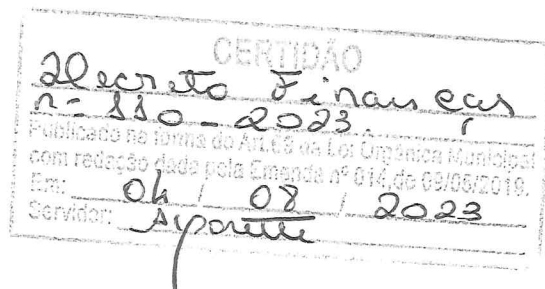 CERTIDÃO
Decreto Finanças
nº 110-2023
Publicado na forma do Art.68 da Lei Orgânica Municipal
com redação dada pela Emenda nº 014,de 09/06/2019.
Em: 04 / 08 / 2023
Servidor: